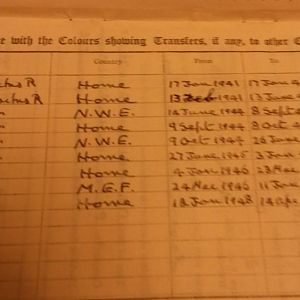 ce with the Colours showing Transfers, if any, to other C
Country From To
R Home 17 Jan 1941 17 Jan
R Home 13 Feb 1941 13 June
" N.W.E. 14 June 1944 8 Sept
" Home 9 Sept 1944 8 Oct
" N.W.E. 9 Oct 1944 26 June
" Home 27 June 1945 3 Jan
Home 4 Jan 1946 23
M.E.F. 24 1946 11 June
Home 1948 14 Apr